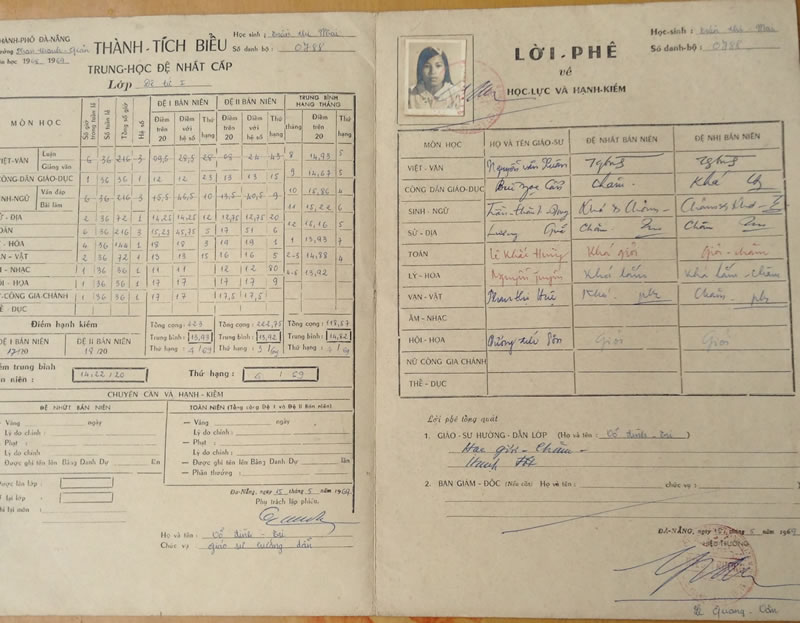 THÀNH-PHỐ ĐÀ-NẴNG
THÀNH-TÍCH BIỂU
TRUNG-HỌC ĐỆ NHẤT CẤP
Lớp Đệ tứ I
Học sinh : Trần thị Mai
Số danh bộ : 0788
MÔN HỌC
Số giờ trong tuần lễ
Số tuần lễ
Tổng số giờ
Hệ số
ĐỆ I BÁN NIÊN
ĐỆ II BÁN NIÊN
TRUNG BÌNH HÀNG THÁNG
Điểm trên 20
Điểm với hệ số
Thứ hạng
Điểm trên 20
Điểm với hệ số
Thứ hạng
tháng
Điểm trên 20
Thứ hạng
VIỆT-VĂN Luận Giảng văn 6 36 216 3 09,5 28,5 28 08 24 43 8 14,93 5
CÔNG DÂN GIÁO-DỤC 1 36 36 1 12 12 23 13 13 15 9 14,67 3
Vấn đáp Bài làm 6 36 216 3 15,5 46,5 10 13,5 40,5 9 10 15,86 4
11 15,22 6
SỬ - ĐỊA 2 36 72 1 14,25 14,25 12 12,75 12,75 20
12 15,16 5
TOÁN 6 36 216 3 15,25 45,75 5 17 51 6
LÝ - HÓA 4 36 144 1 18 18 3 19 19 1 1 13,93 7
VẠN - VẬT 2 36 72 1 13 13 15 16 16 5 2-3 14,88 4
ÂM - NHẠC 1 36 36 1 11 11 12 12 80 4-5 13,92
HỘI - HỌA 1 36 36 1 17 17 17 17 9
NỮ-CÔNG GIA CHÁNH 1 36 36 1 17 17 17,5 17,5
THỂ - DỤC
Điểm hạnh kiểm
ĐỆ I BÁN NIÊN
ĐỆ II BÁN NIÊN
17/20
18/20
Tổng cộng : 223
Tổng cộng : 222,75
Tổng cộng : 118,57
Trung bình : 13,93
Trung bình : 13,92
Trung bình : 14,82
Thứ hạng : 4/69
Thứ hạng : 3/69
Thứ hạng : 4/69
Điểm trung bình
niên :
14,22/20
Thứ hạng :
4/69
CHUYÊN CẦN VÀ HẠNH-KIỂM
ĐỆ NHỨT BÁN NIÊN
TOÀN NIÊN (Tổng cộng Đệ I và Đệ II Bán niên)
— Vắng ngày
Lý do chính :
— Phạt :
Lý do chính :
— Được ghi tên lên Bảng Danh Dự lần
— Vắng ngày
Lý do chính :
— Phạt :
Lý do chính :
— Được ghi tên lên Bảng Danh Dự lần
— Phần thưởng :
Được lên lớp :
lại lớp :
Đà-Nẵng, ngày 15 tháng 5 năm 1969
Phụ trách lập phiếu,
Họ và tên : Võ đình - Tri
Chức vụ : giáo sư hướng dẫn
Học-sinh : Trần thị Mai
Số danh-bộ : 0788
LỜI - PHÊ
về
HỌC-LỰC VÀ HẠNH-KIỂM
MÔN HỌC
HỌ VÀ TÊN GIÁO-SƯ
ĐỆ NHẤT BÁN NIÊN
ĐỆ NHỊ BÁN NIÊN
VIỆT-VĂN
CÔNG DÂN GIÁO-DỤC Chăm. Khá
SINH - NGỮ Khá & Chăm
SỬ - ĐỊA Chăm Chăm
TOÁN Lê Khắc Hưng Khá giỏi Giỏi - chăm
LÝ - HÓA Nguyễn Tuyến Khá lắm Khá lắm - chăm
VẠN-VẬT Khá Chăm
ÂM - NHẠC
HỘI - HỌA Giỏi Giỏi
NỮ CÔNG GIA CHÁNH
THỂ - DỤC
Lời phê tổng quát
1. GIÁO - SƯ HƯỚNG - DẪN LỚP (Họ và tên : Võ đình - Tri )
Học giỏi - Chăm -
Hạnh tốt
2. BAN GIÁM - ĐỐC (Nếu cần) Họ và tên : chức vụ :
ĐÀ-NẴNG, ngày tháng 5 năm 1969
HIỆU-TRƯỞNG